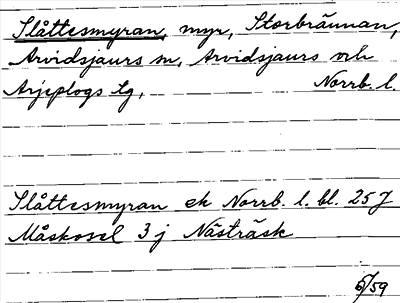 Slåttesmyran, myr, Storbrännan,
Arvidsjaurs sn, Arvidsjaurs och
Arjeplogs tg, Norrb. l.
Slåttesmyran ek Norrb. l. bl. 25J
Måskosel 3 j Nästräsk
6/59